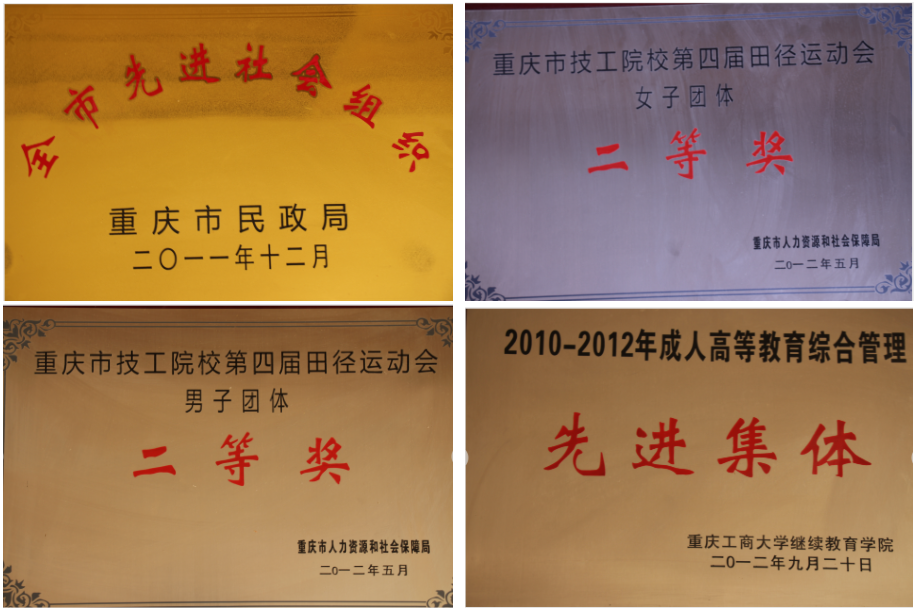 全市先进社会组织
重庆市民政局
二〇一一年十二月
重庆市技工院校第四届田径运动会
女子团体
二等奖
重庆市人力资源和社会保障局
二〇一二年五月
重庆市技工院校第四届田径运动会
男子团体
二等奖
重庆市人力资源和社会保障局
二〇一二年五月
2010-2012年成人高等教育综合管理
先进集体
重庆工商大学继续教育学院
二〇一二年九月二十日